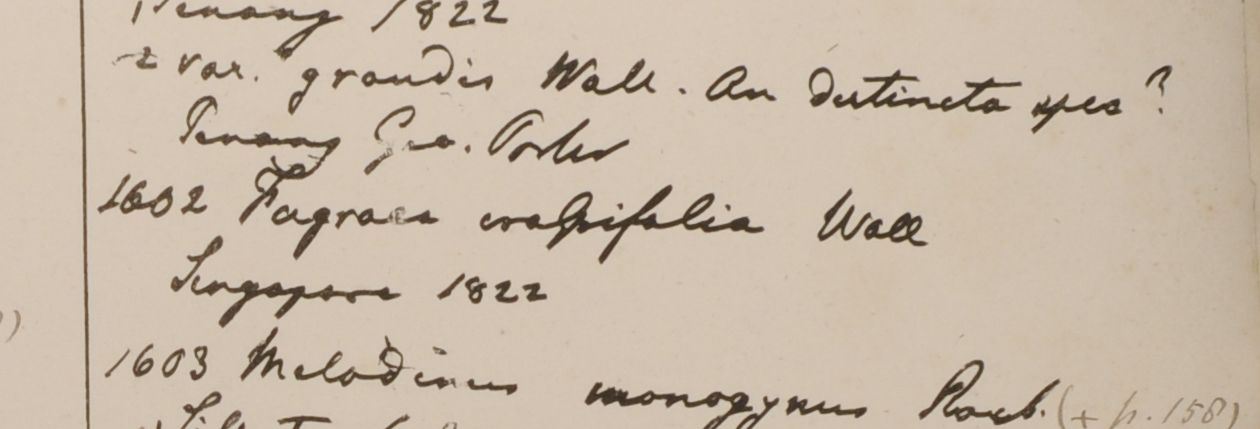 Penang 1822
2 var. grandis Wall. An distincta spec?
Penang Geo. Porter
1602 Fagraea crassifolia Wall
Singapore 1822
1603 Melodinus monogynus Roxb. (+ p. 158)